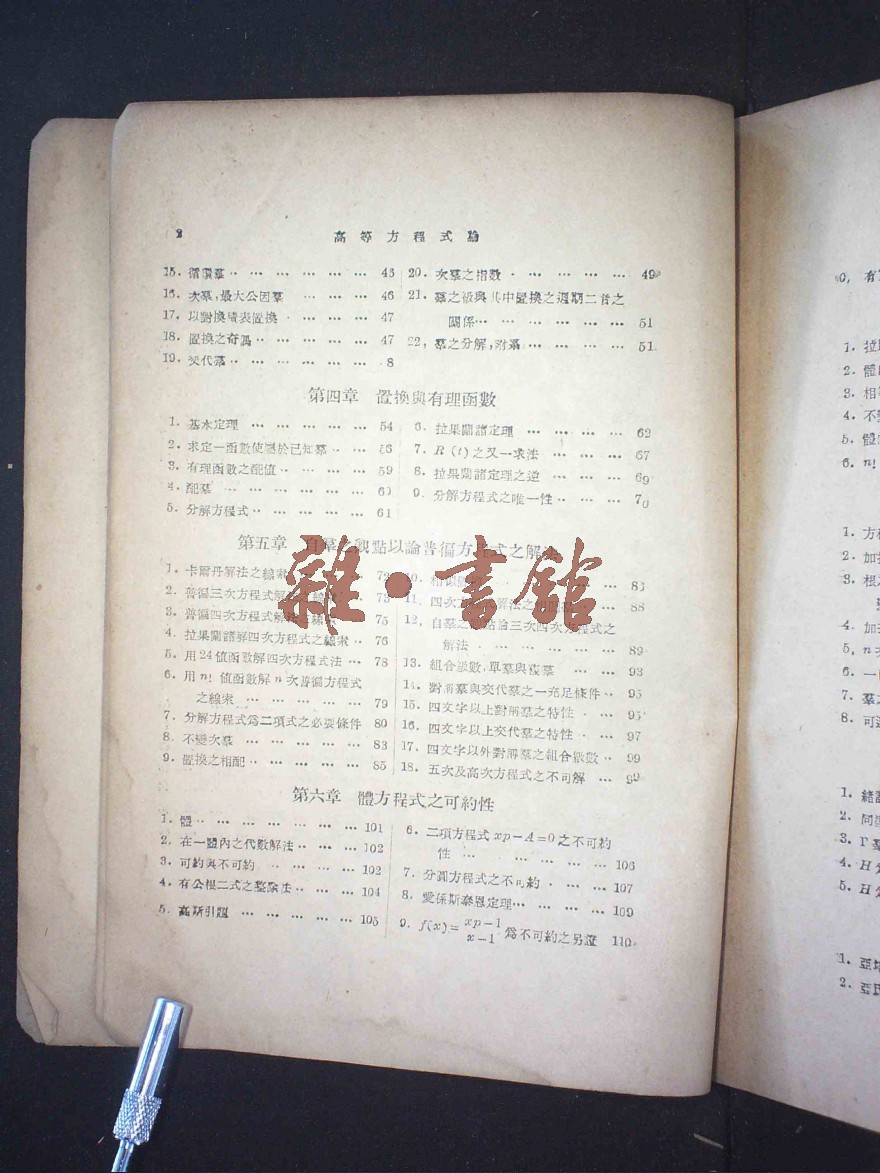 2
高等方程式論
15. 循環羣 … … … … … … 45
16. 次羣,最大公因羣 … … … 46
17. 以對換積表置換 … … … … 47
18. 置換之奇偶 … … … … … 47
19. 交代羣 … … … … … … 8
20. 次羣之指數 … … … … … 49
21. 羣之級與其中置換之週期二者之
關係 … … … … … … 51
22, 羣之分解,附屬 … … … … 51
第四章 置換與有理函數
1. 基本定理 … … … … … 54
2. 求定一函數使屬於已知羣 … … 56
3. 有理函數之配值 … … … … 59
4. 配羣 … … … … … … 60
5. 分解方程式 … … … … … 61
6. 拉果蘭諸定理 … … … … 62
7. R (t) 之又一求法 … … … 67
8. 拉果蘭諸定理之逆 … … … 69
9. 分解方程式之唯一性 … … … 70
第五章 自羣之觀點以論普徧方程式之解法
1. 卡爾丹解法之線索 72
2. 普徧三次方程式解法之線索 73
3. 普徧四次方程式解法之線索 75
4. 拉果蘭諸解四次方程式之線索 … 76
5. 用24值函數解四次方程式法 … 78
6. 用n! 值函數解n次普徧方程式
之線索 … … … … … 79
7. 分解方程式爲二項式之必要條件 80
8. 不變次羣 … … … … … 83
9. 置換之相配 … … … … … 85
10. 相似 … … … 86
11. 四次 解法之 88
12, 自羣之 論三次四次方程式之
解法 … … … … … … 89
13. 組合級數,單羣與複羣 … … 93
14. 對稱羣與交代羣之一充足條件 … 95
15. 四文字以上對稱羣之特性 … … 95
16. 四文字以上交代羣之特性 … … 97
17. 四文字以外對稱羣之組合級數 … 99
18. 五次及高次方程式之不可解 … 99
第六章 體方程式之可約性
1. 體 … … … … … … … 101
2. 在一體內之代數解法 … … … 102
3. 可約與不可約 … … … … 102
4. 有公根二式之整除性 … … … 104
5. 高斯引題 … … … … … 105
6. 二項方程式 xp－A＝0 之不可約
性 … … … … … … 106
7. 分圓方程式之不可約 … … … 107
8. 愛係斯泰恩定理 … … … … 109
9. f(x)= xp－1 / x－1 爲不可約之另證 110
0, 有
1. 拉
2. 體
3. 相
4. 不
5. 體
6. n!
1. 方
2. 加
3. 根之
4. 加
5, n次
6. 一
7. 羣之
8. 可
1. 緒
2. 同
3. Γ羣
4. H
5. H
1. 亞
2. 亞
雜·書館